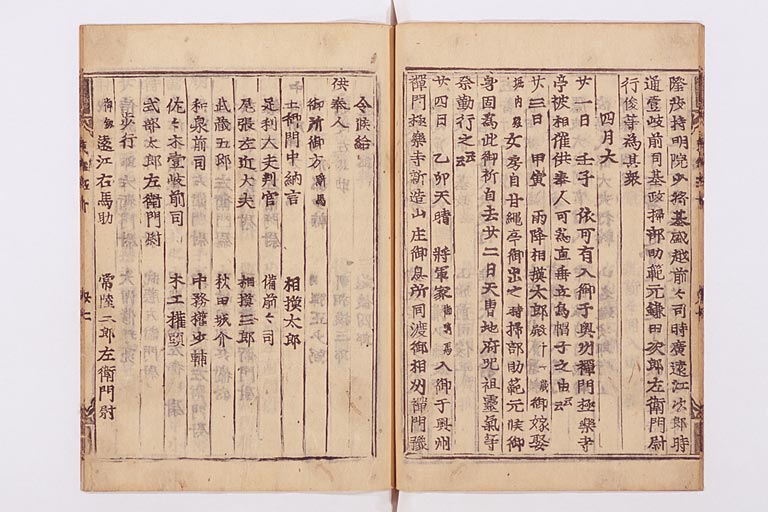 隆茂持明院少将基盛越前々司時廣遠江次郎時
通壹岐前司基政掃部助範元鎌田次郎左衛門尉
行俊等為其衆
四月大
廿一日 壬子 依可有入御于奥州禅門極楽寺
亭被相催供奉人可為直垂立烏帽子之由云云
廿三日 甲寅 雨降相摸太郎殿十一歳御嫁娶
堀内殿女房自甘縄亭御出之時掃部助範元候御
身固為此御祈自去廿二日天曹地府呪咀霊氣等
祭勤行之云云
廿四日 乙卯天晴 将軍家御騎馬入御于奥州
禅門極楽寺新造山庄御息所同渡御相州禅門豫
令候給
供奉人
御所御方騎馬
土御門中納言 相摸太郎
足利大夫判官 備前々司
尾張左近大夫 相摸三郎
武蔵五郎 秋田城介
和泉前司 中務権少輔
佐々木壹岐前司 木工権頭
式部太郎左衛門尉
歩行
遠江右馬助 常陸二郎左衛門尉